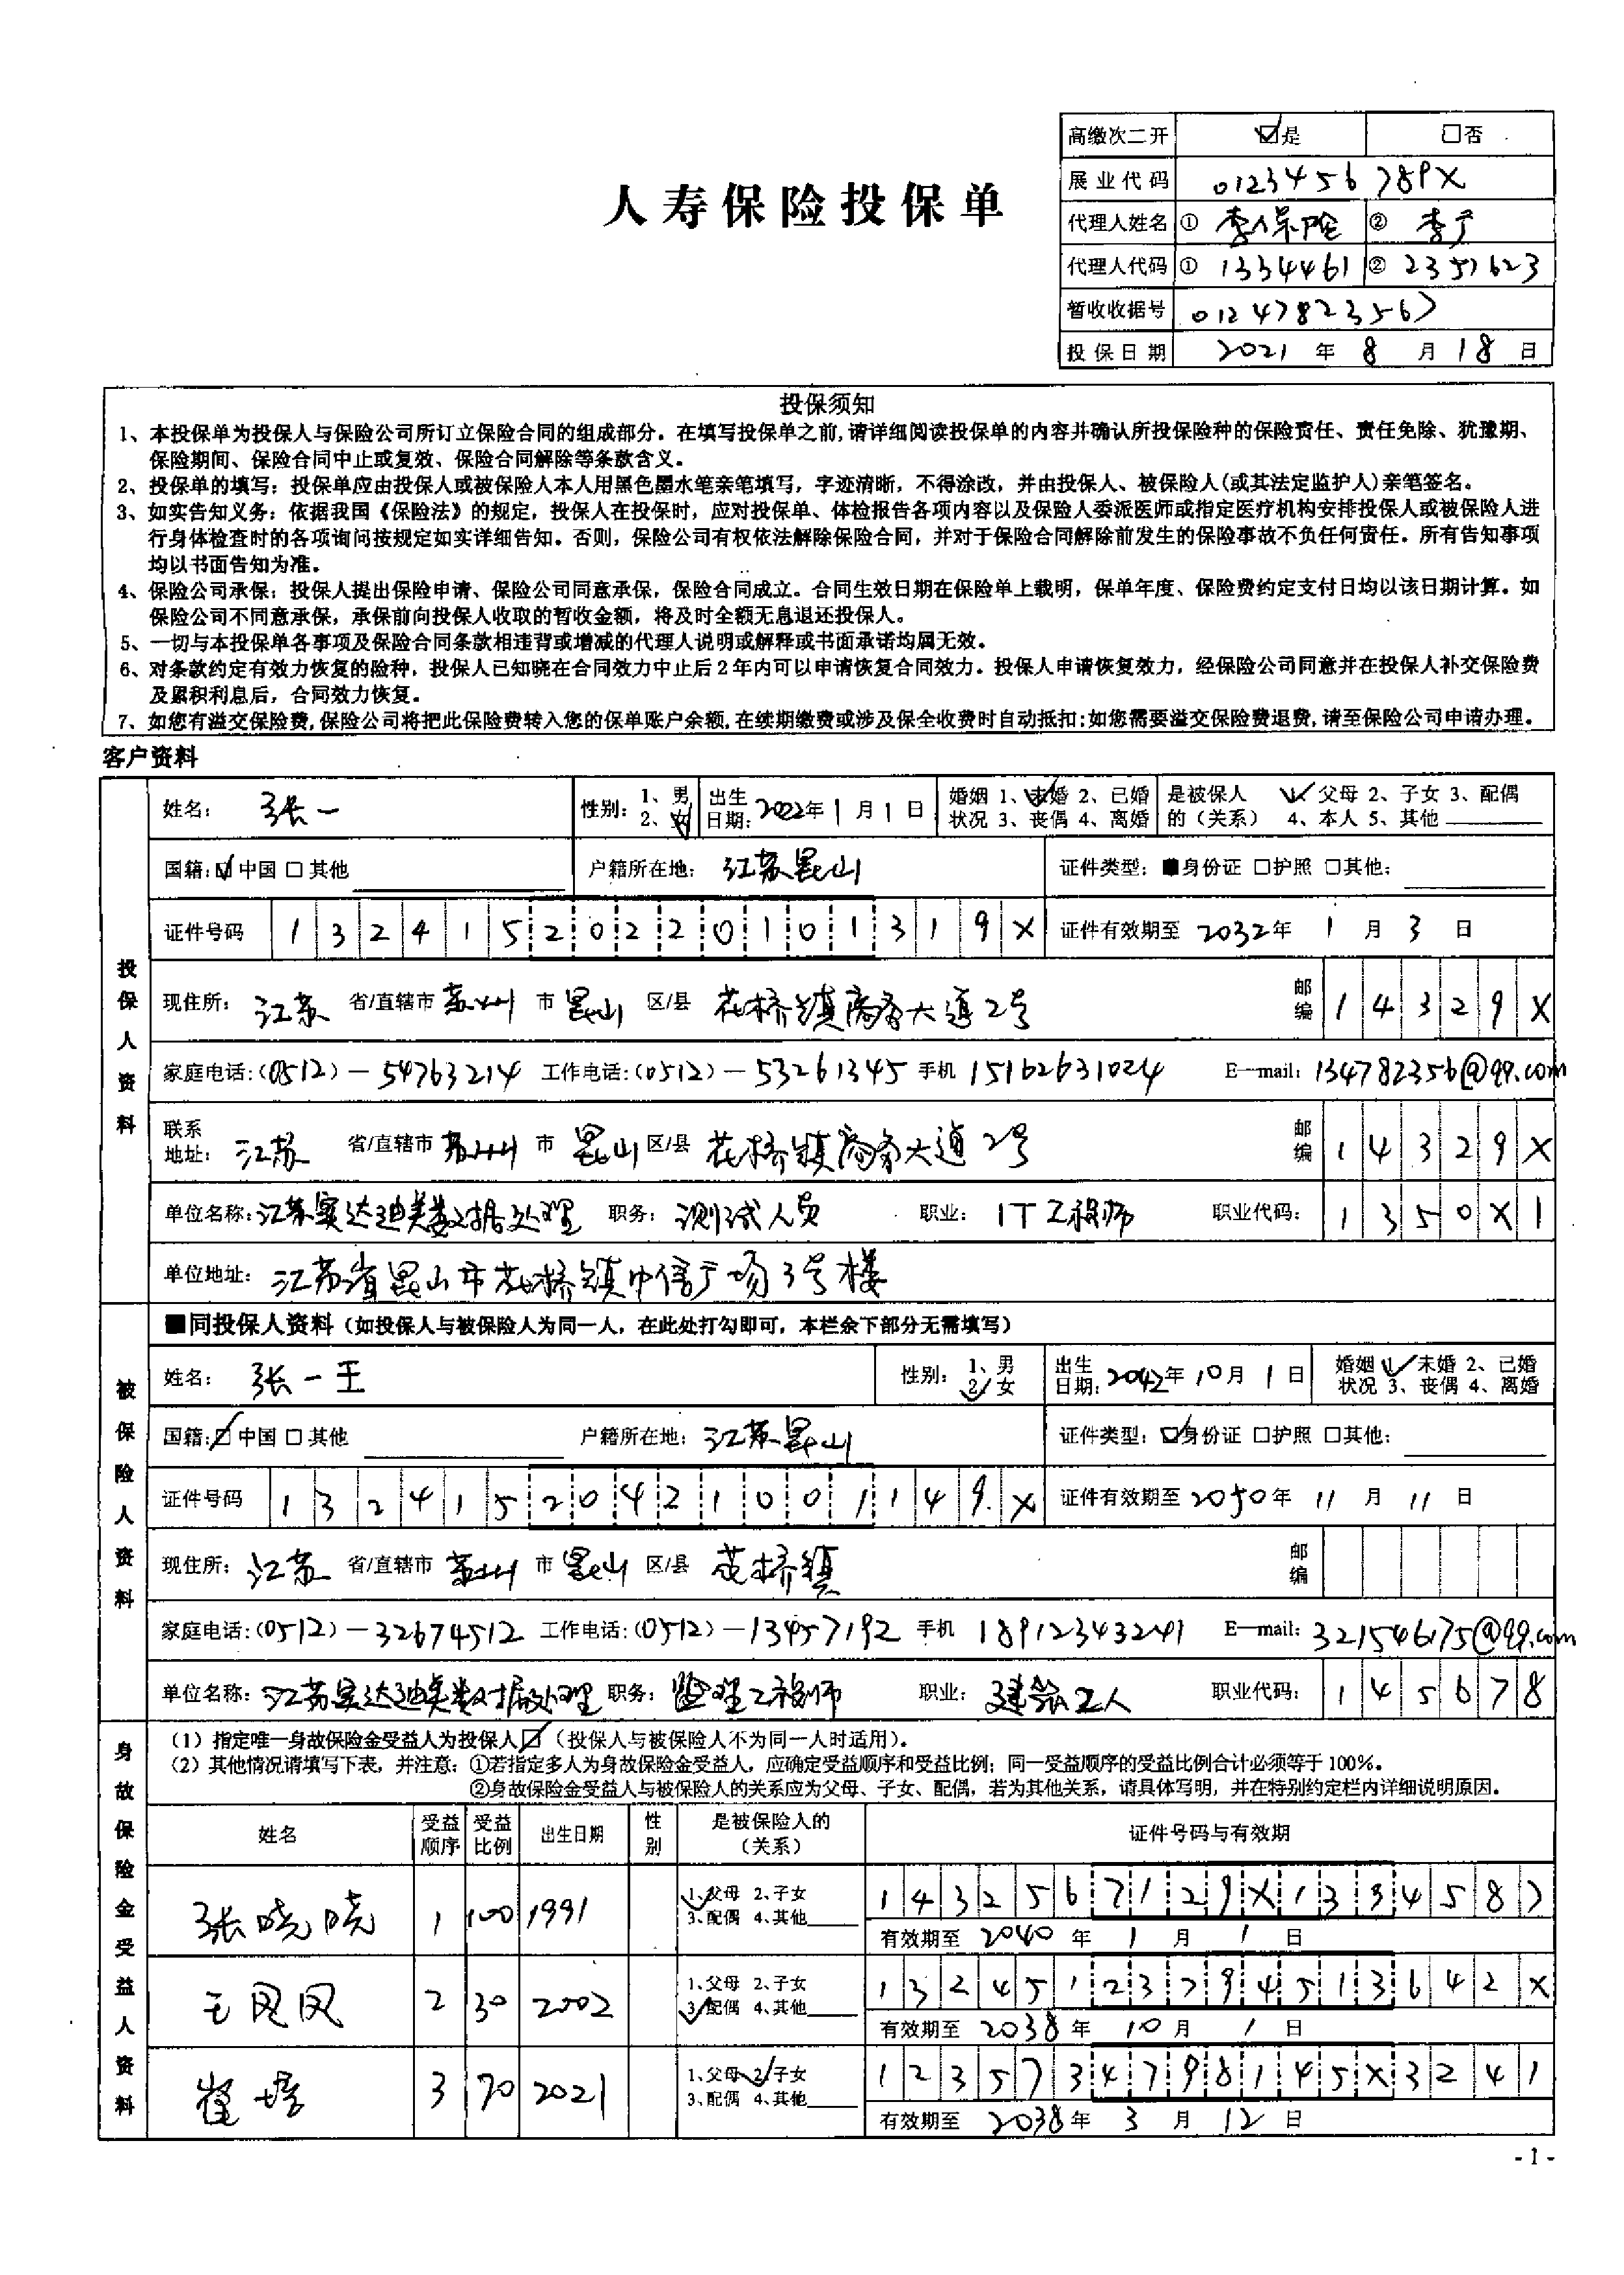 高缴次二开 ☑是 □否
人寿保险投保单
展业代码 0123456789X
代理人姓名 ① 李保险 ② 李广
代理人代码 ① 1334461 ② 2357623
暂收收据号 01247823567
投保日期 2021 年 8 月 18 日
投保须知
1、本投保单为投保人与保险公司所订立保险合同的组成部分。在填写投保单之前,请详细阅读投保单的内容并确认所投保险种的保险责任、责任免除、犹豫期、
保险期间、保险合同中止或复效、保险合同解除等条款含义。
2、投保单的填写：投保单应由投保人或被保险人本人用黑色墨水笔亲笔填写，字迹清晰，不得涂改，并由投保人、被保险人(或其法定监护人)亲笔签名。
3、如实告知义务：依据我国《保险法》的规定，投保人在投保时，应对投保单、体检报告各项内容以及保险人委派医师或指定医疗机构安排投保人或被保险人进
行身体检查时的各项询问按规定如实详细告知。否则，保险公司有权依法解除保险合同，并对于保险合同解除前发生的保险事故不负任何责任。所有告知事项
均以书面告知为准。
4、保险公司承保：投保人提出保险申请、保险公司同意承保，保险合同成立。合同生效日期在保险单上载明，保单年度、保险费约定支付日均以该日期计算。如
保险公司不同意承保，承保前向投保人收取的暂收金额，将及时全额无息退还投保人。
5、一切与本投保单各事项及保险合同条款相违背或增减的代理人说明或解释或书面承诺均属无效。
6、对条款约定有效力恢复的险种，投保人已知晓在合同效力中止后2年内可以申请恢复合同效力。投保人申请恢复效力，经保险公司同意并在投保人补交保险费
及累积利息后，合同效力恢复。
7、如您有溢交保险费,保险公司将把此保险费转入您的保单账户余额,在续期缴费或涉及保全收费时自动抵扣;如您需要溢交保险费退费,请至保险公司申请办理。
客户资料
投保人资料
姓名： 张一 性别：1、男 2、女 出生日期：2022年1月1日 婚姻状况 1、未婚 2、已婚 3、丧偶 4、离婚 是被保人的（关系） 1、父母 2、子女 3、配偶 4、本人 5、其他
国籍：☑中国 □其他 户籍所在地： 江苏昆山 证件类型：■身份证 □护照 □其他：
证件号码 13241520220101319X 证件有效期至 2032年 1 月 3 日
现住所： 江苏 省/直辖市 苏州 市 昆山 区/县 花桥镇商务大道2号 邮编 14329X
家庭电话：(0512)－54763214 工作电话：(0512)－53261345 手机 15162631024 E—mail：134782356@qq.com
联系地址： 江苏 省/直辖市 苏州 市 昆山 区/县 花桥镇商务大道2号 邮编 14329X
单位名称：江苏实达迪美数据处理 职务： 测试人员 职业： IT工程师 职业代码： 1350X1
单位地址： 江苏省昆山市花桥镇中信广场3号楼
被保险人资料
■同投保人资料（如投保人与被保险人为同一人，在此处打勾即可，本栏余下部分无需填写）
姓名： 张一王 性别：1、男 2、女 出生日期：2042年10月1日 婚姻状况 1、未婚 2、已婚 3、丧偶 4、离婚
国籍：☑中国 □其他 户籍所在地： 江苏昆山 证件类型：☑身份证 □护照 □其他：
证件号码 13241520421001149X 证件有效期至 2050年 11 月 11 日
现住所： 江苏 省/直辖市 苏州 市 昆山 区/县 花桥镇 邮编
家庭电话：(0512)－32674512 工作电话：(0512)－13457192 手机 18912343241 E—mail：321546175@qq.com
单位名称：江苏实达迪美数据处理 职务： 监理工程师 职业： 建筑工人 职业代码： 145678
身故保险金受益人资料
（1）指定唯一身故保险金受益人为投保人☑（投保人与被保险人不为同一人时适用）。
（2）其他情况请填写下表，并注意：①若指定多人为身故保险金受益人，应确定受益顺序和受益比例；同一受益顺序的受益比例合计必须等于100%。
②身故保险金受益人与被保险人的关系应为父母、子女、配偶，若为其他关系，请具体写明，并在特别约定栏内详细说明原因。
姓名 受益顺序 受益比例 出生日期 性别 是被保险人的（关系） 证件号码与有效期
张晓晓 1 100 1991 1、父母 2、子女 3、配偶 4、其他 1432567129X1334587
有效期至 2040 年 1 月 1 日
王凤凤 2 30 2002 1、父母 2、子女 3、配偶 4、其他 13245123794513642X
有效期至 2038 年 10 月 1 日
崔培 3 70 2021 1、父母 2、子女 3、配偶 4、其他 1235734798145X3241
有效期至 2038年 3 月 12 日
- 1 -